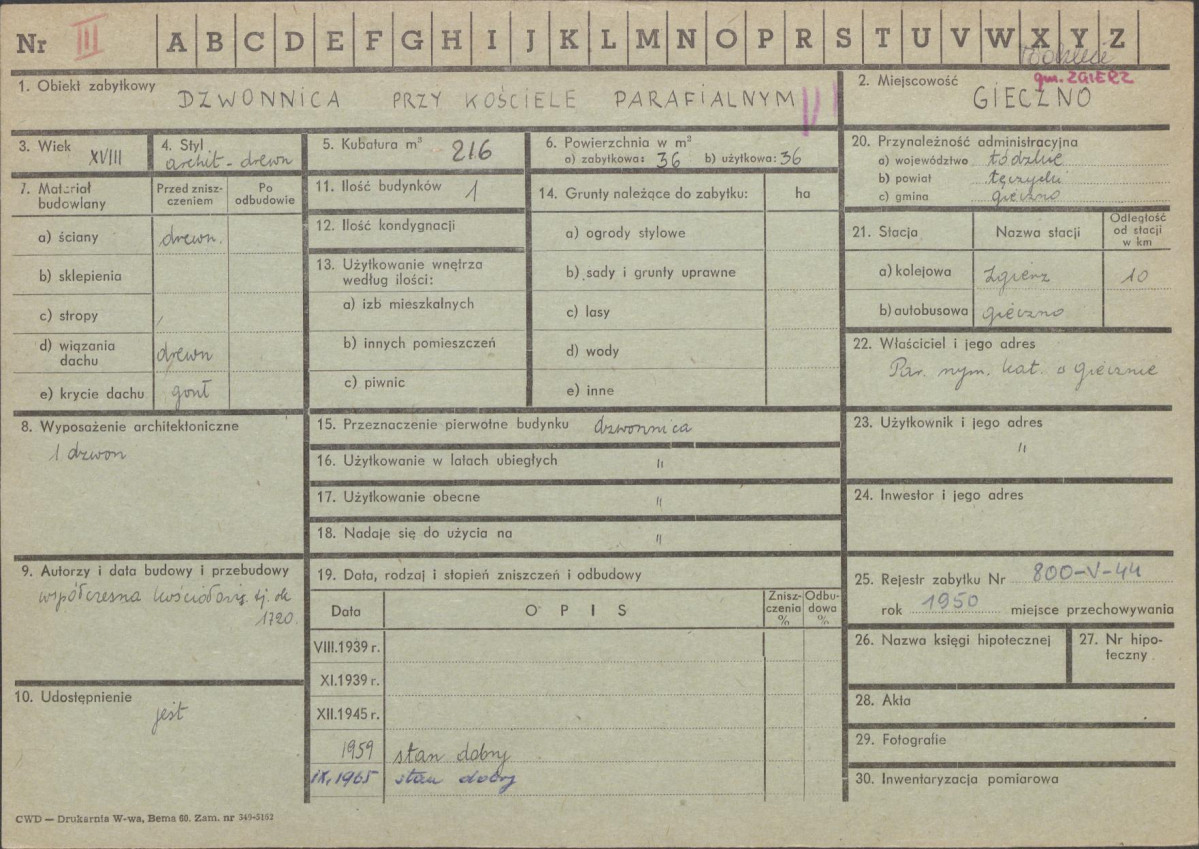 Nr III A B C D E F G H I J K L M N O P R S T U V W X Y Z
gm. ZGIERZ
1. Obiekt zabytkowy DZWONNICA PRZY KOŚCIELE PARAFIALNYM
2. Miejscowość GIECZNO
3. Wiek XVIII
4. Styl archit-drewn
5. Kubatura m³ 216
6. Powierzchnia w m²
a) zabytkowa: 36 b) użytkowa: 36
20. Przynależność administracyjna
a) województwo łódzkie
b) powiat łęczycki
c) gmina gieczno
7. Materiał budowlany
Przed zniszczeniem
Po odbudowie
a) ściany drewn.
b) sklepienia
c) stropy
d) wiązania dachu drewn
e) krycie dachu gont
11. Ilość budynków 1
12. Ilość kondygnacji
13. Użytkowanie wnętrza
według ilości:
a) izb mieszkalnych
b) innych pomieszczeń
c) piwnic
14. Grunty należące do zabytku: ha
a) ogrody stylowe
b) sady i grunty uprawne
c) lasy
d) wody
e) inne
21. Stacja Nazwa stacji
Odległość
od stacji
w km
a) kolejowa Zgierz 10
b) autobusowa gieczno
22. Właściciel i jego adres
Par. rzym. kat. w giecznie
8. Wyposażenie architektoniczne
1 dzwon
15. Przeznaczenie pierwotne budynku dzwonnica
16. Użytkowanie w latach ubiegłych "
17. Użytkowanie obecne "
18. Nadaje się do użycia na "
23. Użytkownik i jego adres
"
24. Inwestor i jego adres
9. Autorzy i data budowy i przebudowy
współczesna kościołowi tj. ok
1720.
10. Udostępnienie
jest
19. Data, rodzaj i stopień zniszczeń i odbudowy
Data OPIS
Zniszczenia %
Odbudowa %
VIII.1939 r.
XI.1939 r.
XII.1945 r.
1959 stan dobry
IX.1965 stan dobry
25. Rejestr zabytku Nr 800-V-44
rok 1950 miejsce przechowywania
26. Nazwa księgi hipotecznej
27. Nr hipoteczny
28. Akta
29. Fotografie
30. Inwentaryzacja pomiarowa
CWD — Drukarnia W-wa, Bema 60. Zam. nr 349-5162